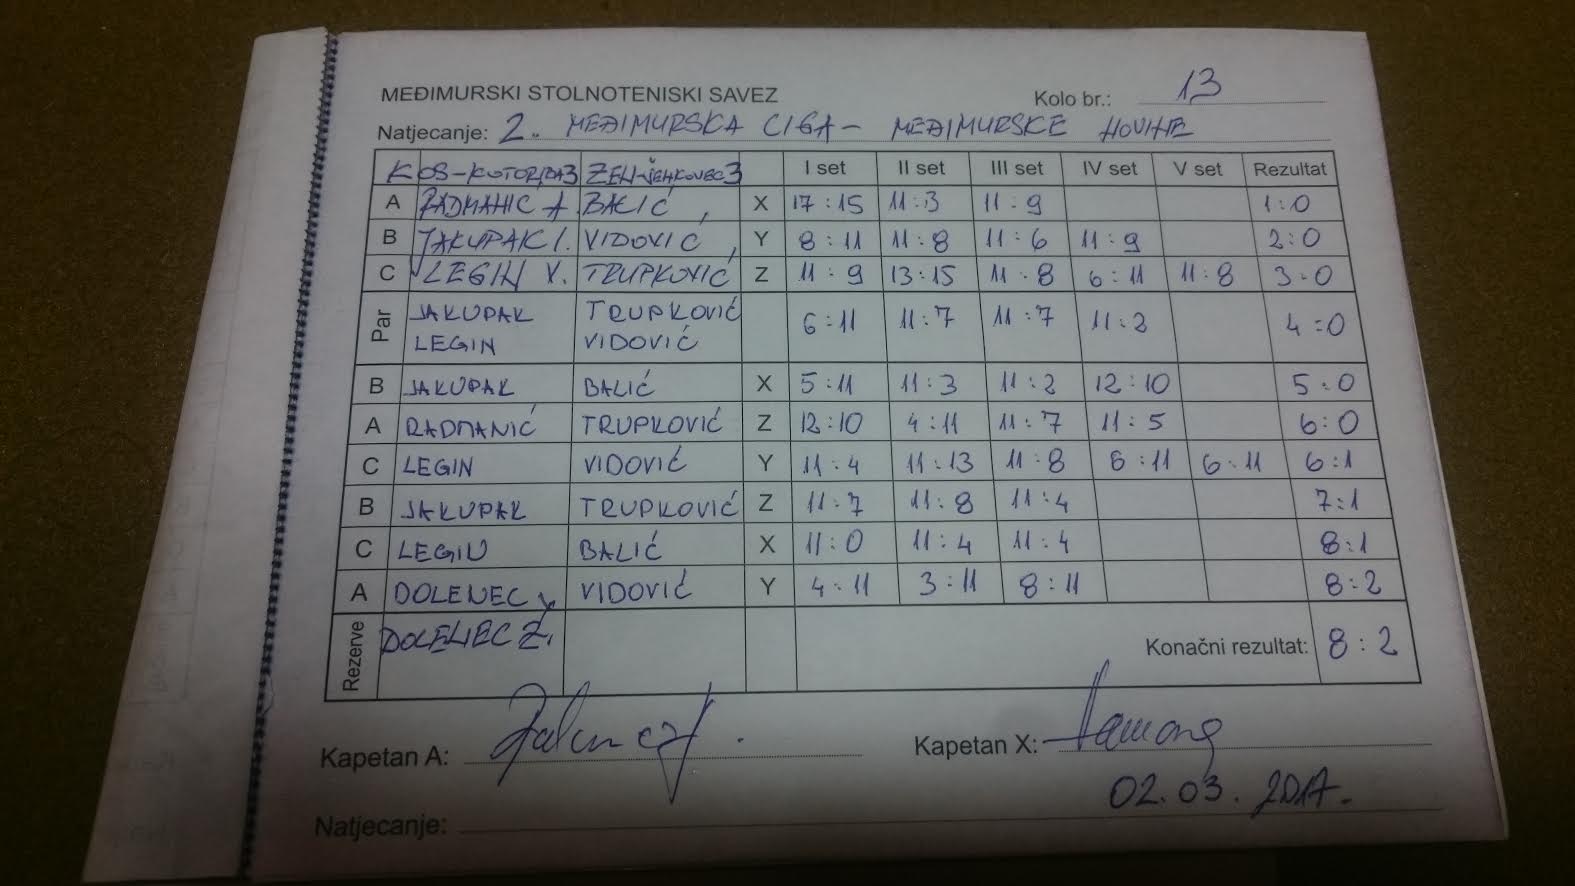 MEĐIMURSKI STOLNOTENISKI SAVEZ
Kolo br.: 13
Natjecanje: 2. MEĐIMURSKA LIGA - MEĐIMURSKE NOVINE
KOS-KOTORIBA3 ŽELJ-ŠENKOVEC3 I set II set III set IV set V set Rezultat
A RADMANIĆ A. BALIĆ X 17:15 11:3 11:9 1:0
B JAKUPAK I. VIDOVIĆ Y 8:11 11:8 11:6 11:9 2:0
C LEGIN V. TRUPKOVIĆ Z 11:9 13:15 11:8 6:11 11:8 3:0
Par JAKUPAK TRUPKOVIĆ 6:11 11:7 11:7 11:2 4:0
LEGIN VIDOVIĆ
B JAKUPAK BALIĆ X 5:11 11:3 11:2 12:10 5:0
A RADMANIĆ TRUPKOVIĆ Z 12:10 4:11 11:7 11:5 6:0
C LEGIN VIDOVIĆ Y 11:4 11:13 11:8 6:11 6:11 6:1
B JAKUPAK TRUPKOVIĆ Z 11:7 11:8 11:4 7:1
C LEGIN BALIĆ X 11:0 11:4 11:4 8:1
A DOLENEC VIDOVIĆ Y 4:11 3:11 8:11 8:2
Rezerve DOLENEC Ž. Konačni rezultat: 8:2
Kapetan A: Kapetan X:
02.03.2017.
Natjecanje: